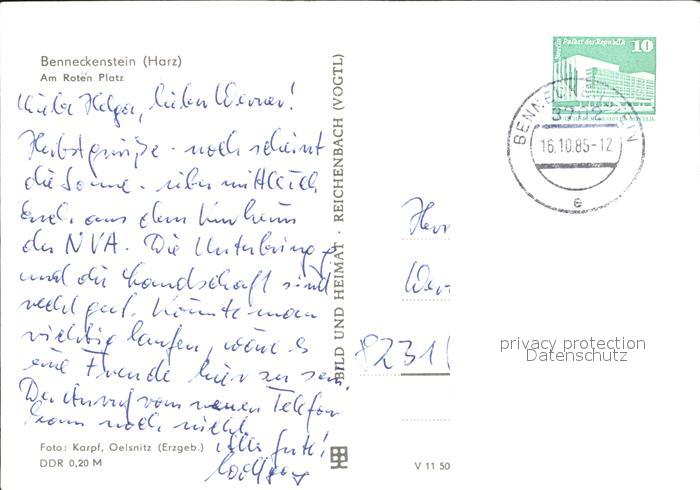 Benneckenstein (Harz)
Am Roten Platz
Liebe Helga, lieber Werner!
Herbstgrüße - noch scheint
die Sonne - übermittle ich
Euch aus dem Kurheim
der NVA. Die Unterbringg
und die Landschaft sind
recht gut. Könnte man
richtig laufen, wäre es
eine Freude hier zu sein.
Der Anruf vom neuen Telefon
kann noch nicht.
Alles Gute!
Wolfgang
Foto: Karpf, Oelsnitz (Erzgeb.)
DDR 0,20 M
BILD UND HEIMAT · REICHENBACH (VOGTL)
V 11 50
Berlin Palast der Republik 10
BENNECKENSTEIN
3702
16.10.85-12
e
Herr
Wer
8231
privacy protection
Datenschutz